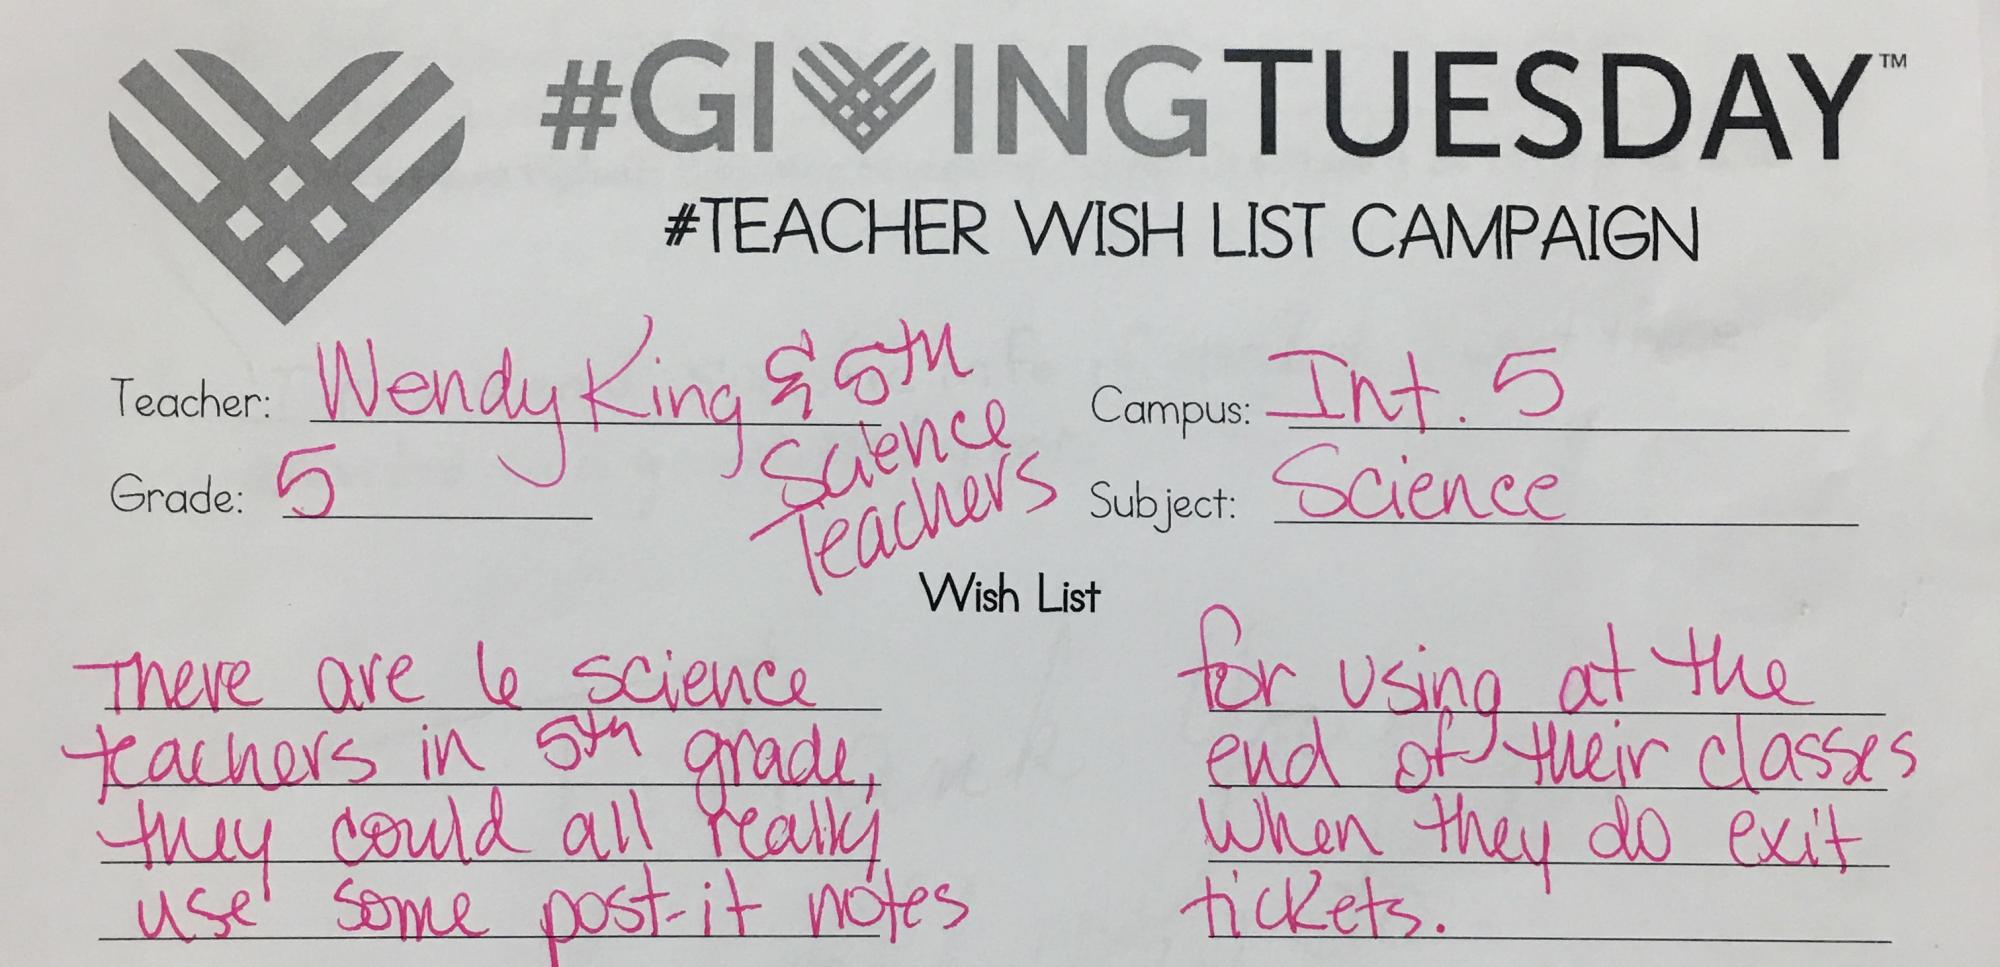 #GIVINGTUESDAY™
#TEACHER WISH LIST CAMPAIGN
Teacher: Wendy King & 5th Science Teachers
Campus: Int. 5
Grade: 5
Subject: Science
Wish List
There are 6 science
teachers in 5th grade,
they could all really
use some post-it notes
for using at the
end of their classes
when they do exit
tickets.